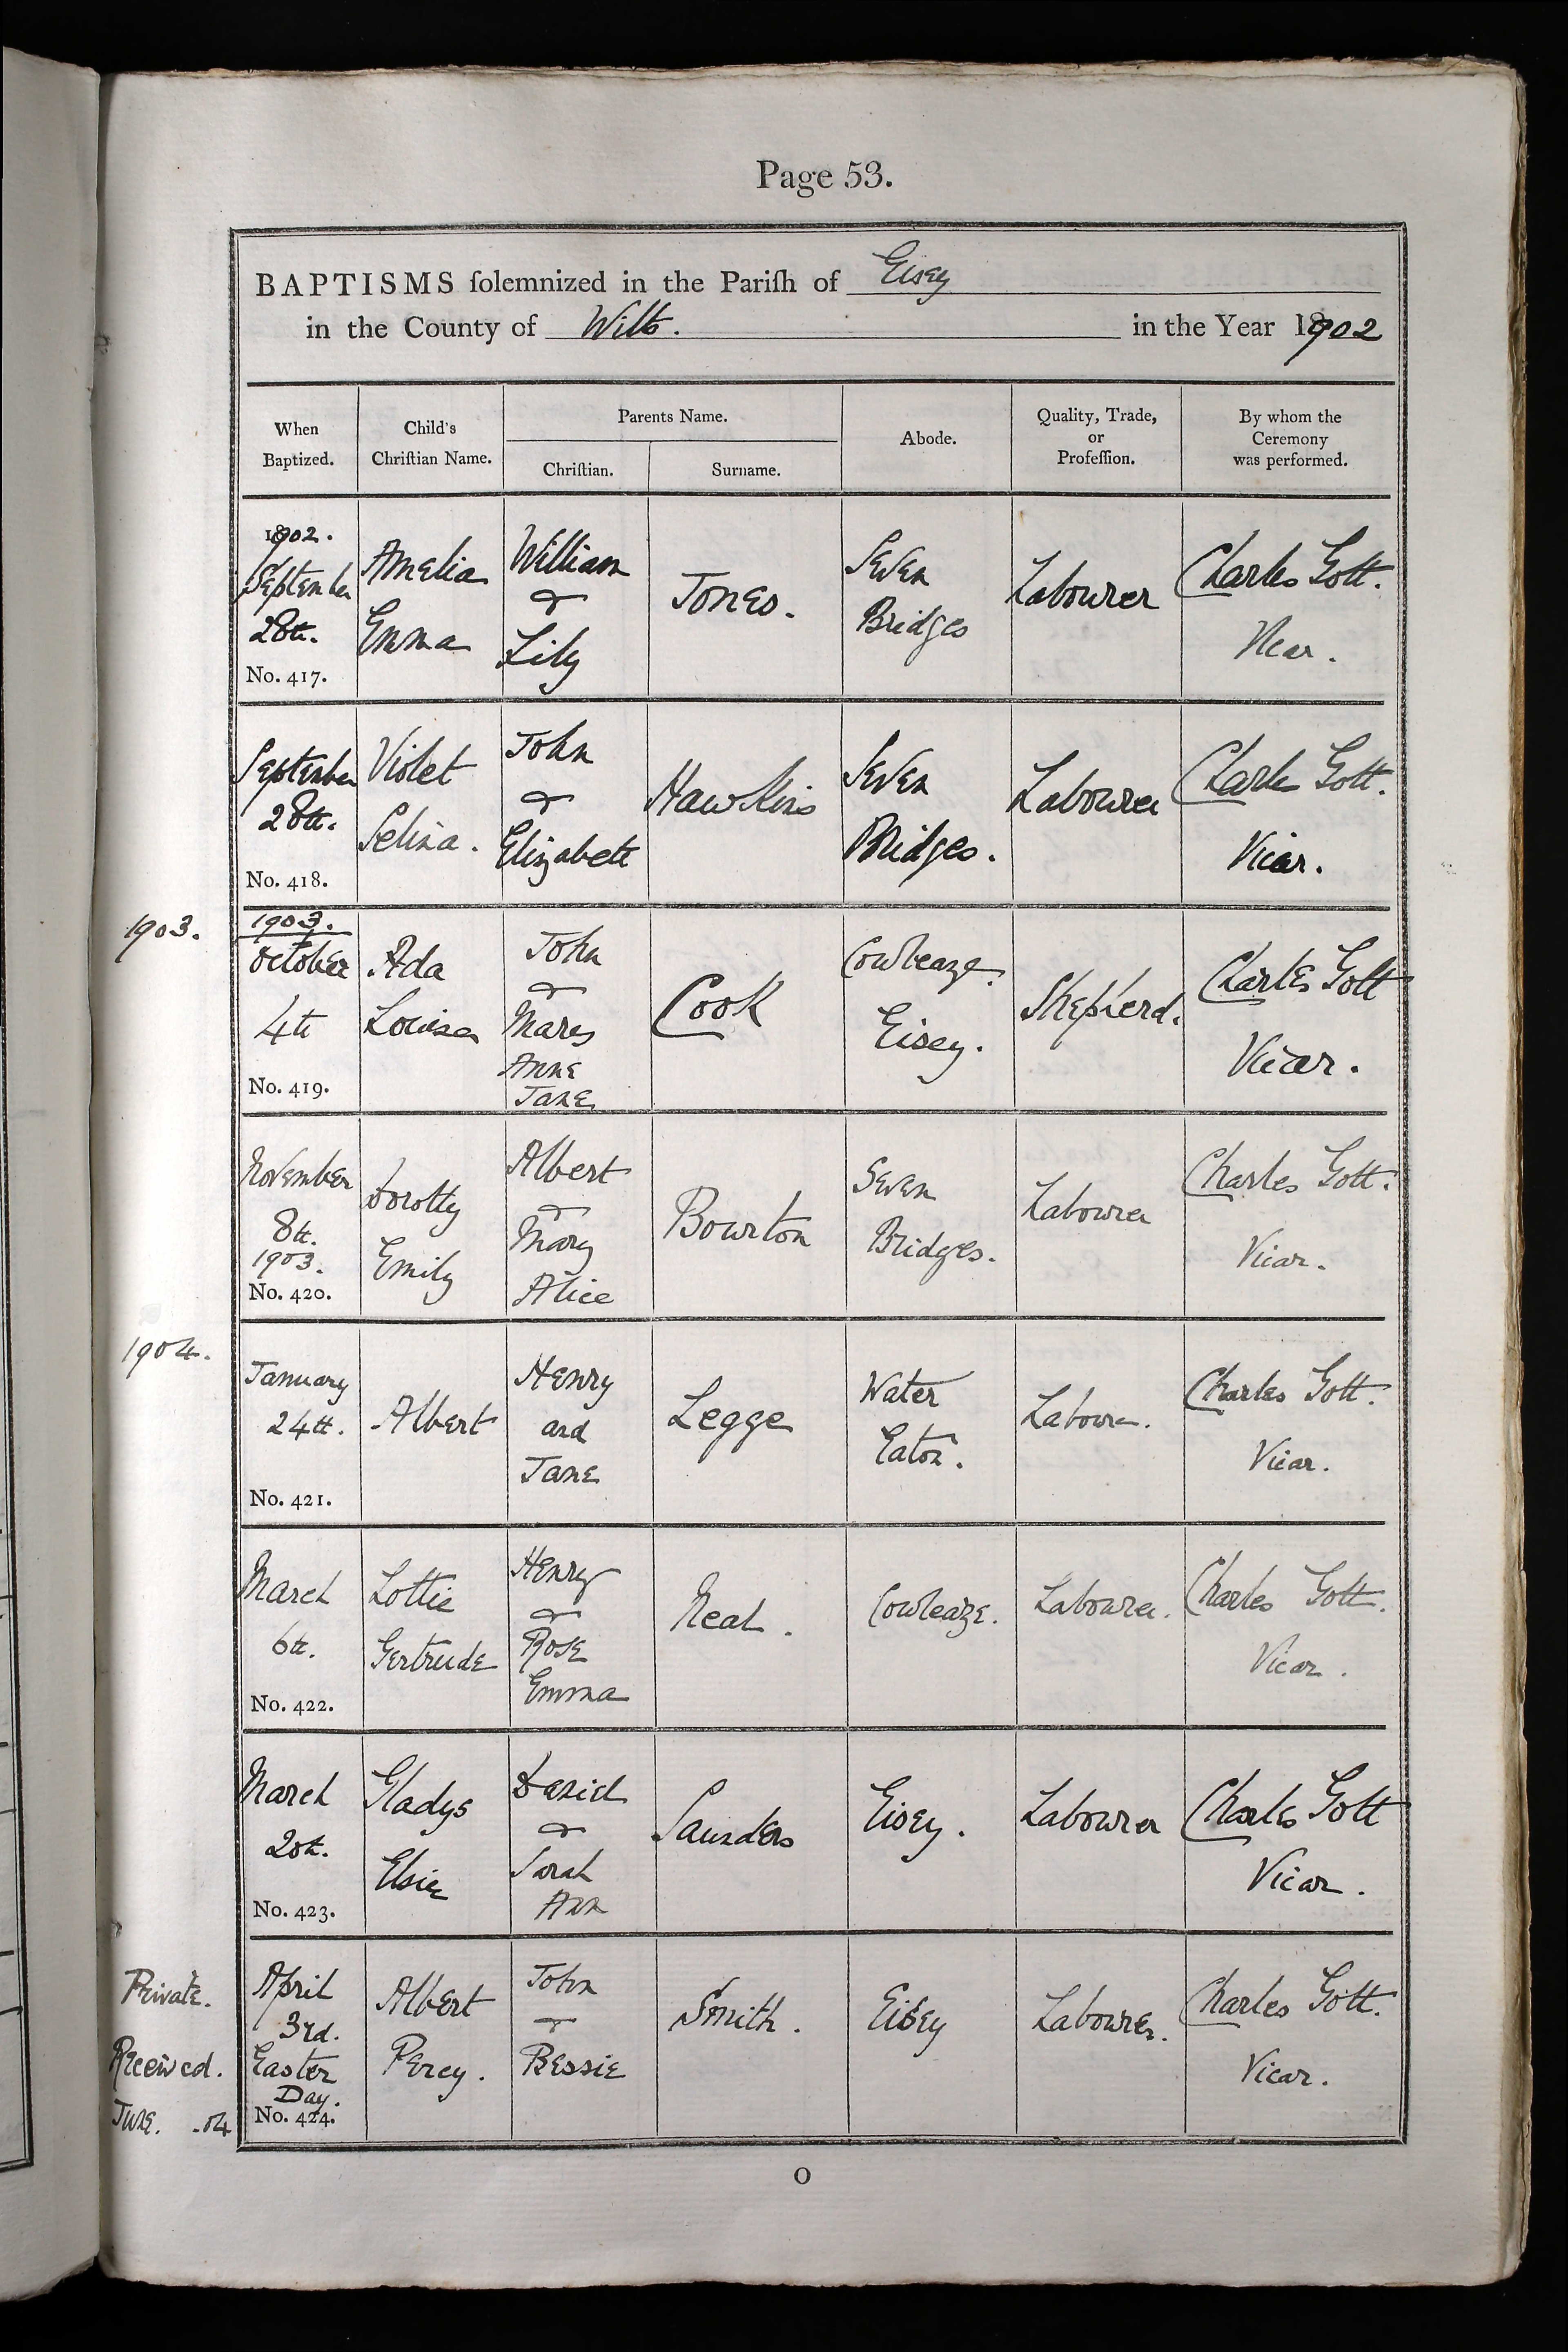 Page 53.
BAPTISMS ſolemnized in the Pariſh of Eisey
in the County of Wilts. in the Year 1902
When Baptized.
Child's Chriſtian Name.
Parents Name.
Chriſtian.
Surname.
Abode.
Quality, Trade, or Profeſſion.
By whom the Ceremony was performed.
1902.
September
28th.
No. 417.
Amelia
Emma
William
&
Lily
Jones.
Seven
Bridges
Labourer
Charles Gott.
Vicar.
September
28th.
No. 418.
Violet
Selina.
John
&
Elizabeth
Hawkins
Seven
Bridges.
Labourer
Charles Gott.
Vicar.
1903.
1903.
October
4th
No. 419.
Ada
Louisa
John
&
Mary
Anne
Jane
Cook
Cowleaze.
Eisey.
Shepherd.
Charles Gott
Vicar.
November
8th.
1903.
No. 420.
Dorothy
Emily
Albert
&
Mary
Alice
Bourton
Seven
Bridges.
Labourer
Charles Gott.
Vicar.
1904.
January
24th.
No. 421.
Albert
Henry
and
Jane
Legge
Water
Eaton.
Labourer.
Charles Gott.
Vicar.
March
6th.
No. 422.
Lottie
Gertrude
Henry
&
Rose
Emma
Neal.
Cowleaze.
Labourer.
Charles Gott.
Vicar.
March
20th.
No. 423.
Gladys
Elsie
David
&
Sarah
Ann
Saunders
Eisey.
Labourer
Charles Gott
Vicar.
Private.
Received.
June. -04
April
3rd.
Easter
Day.
No. 424.
Albert
Percy.
John
&
Bessie
Smith.
Eisey
Labourer.
Charles Gott.
Vicar.
O